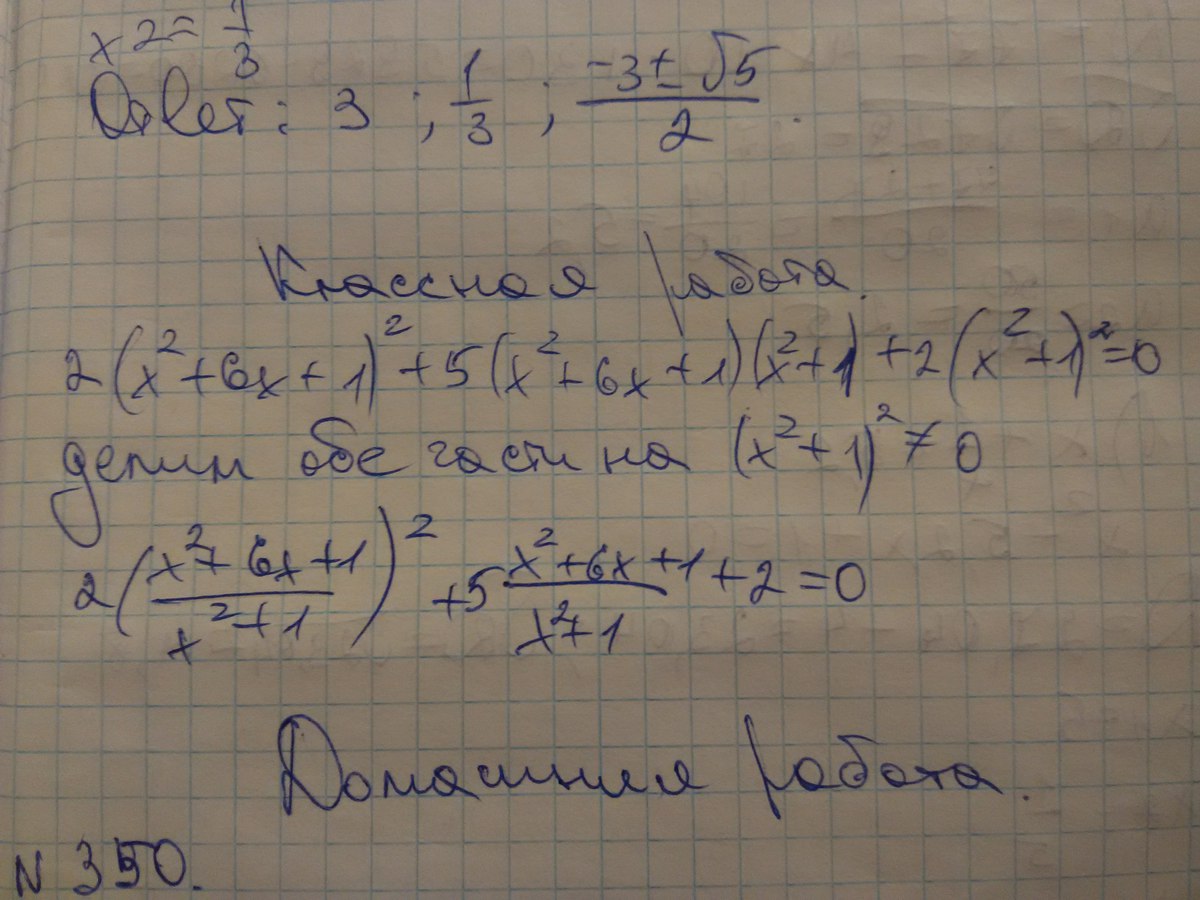 x2 = 1/3
Ответ: 3 ; 1/3 ; (-3 ± √5)/2 .
Классная работа.
2(x²+6x+1)²+5(x²+6x+1)(x²+1)+2(x²+1)²=0
делим обе части на (x²+1)² ≠ 0
2((x²+6x+1)/(x²+1))² +5 (x²+6x+1)/(x²+1) +2=0
Домашняя работа.
N 350.